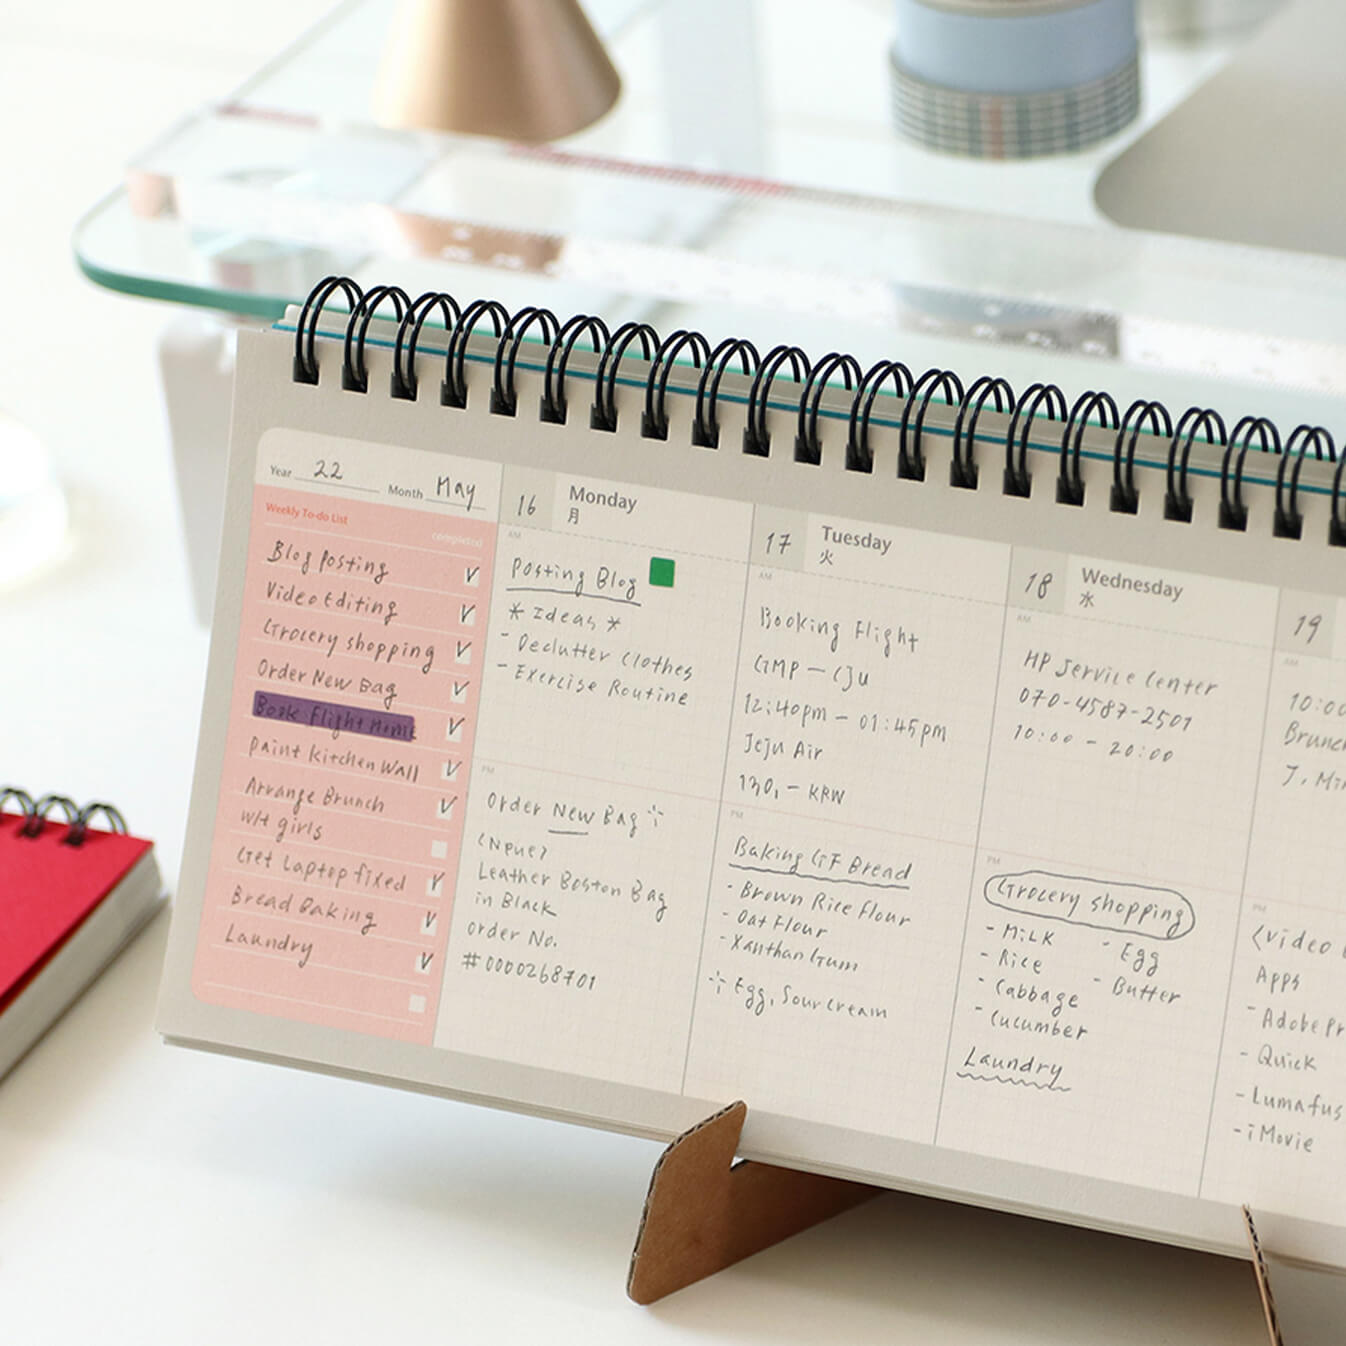 Year 22 Month May
Weekly To-do List
completed
Blog posting
Video Editing
Grocery shopping
Order New Bag
Book Flight Home
Paint kitchen Wall
Arrange Brunch
w/t girls
Get Laptop fixed
Bread Baking
Laundry
16 Monday
月
AM
Posting Blog
* Ideas *
- Declutter clothes
- Exercise Routine
PM
Order New Bag
Leather Boston Bag
in Black
order No.
#0000268701
17 Tuesday
火
AM
Booking Flight
GMP - CJU
12:40pm - 01:45pm
Jeju Air
130,- KRW
PM
Baking GF Bread
- Brown Rice Flour
- Oat Flour
- Xanthan Gum
Egg, Sour cream
18 Wednesday
水
AM
HP Service Center
070-4587-2501
10:00 - 20:00
PM
Grocery shopping
- Milk
- Rice
- Cabbage
- Cucumber
- Egg
- Butter
Laundry
19
AM
10:00
PM
<Video
Apps
- Adobe Pr
- Quick
- Lumafus
- iMovie